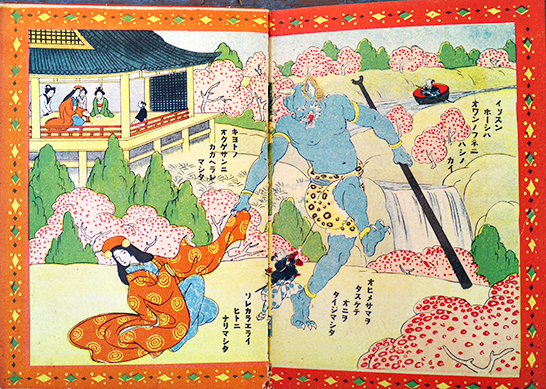 イツスン
ホーシハ
オワンノフネニ
ハシノ
カイ
キヨトノ
オクゲサンニ
カカヘラレ
マシタ
オヒメサマヲ
タスケテ
オニヲ
タイジシマシタ
ソレカラエライ
ヒトニ
ナリマシタ